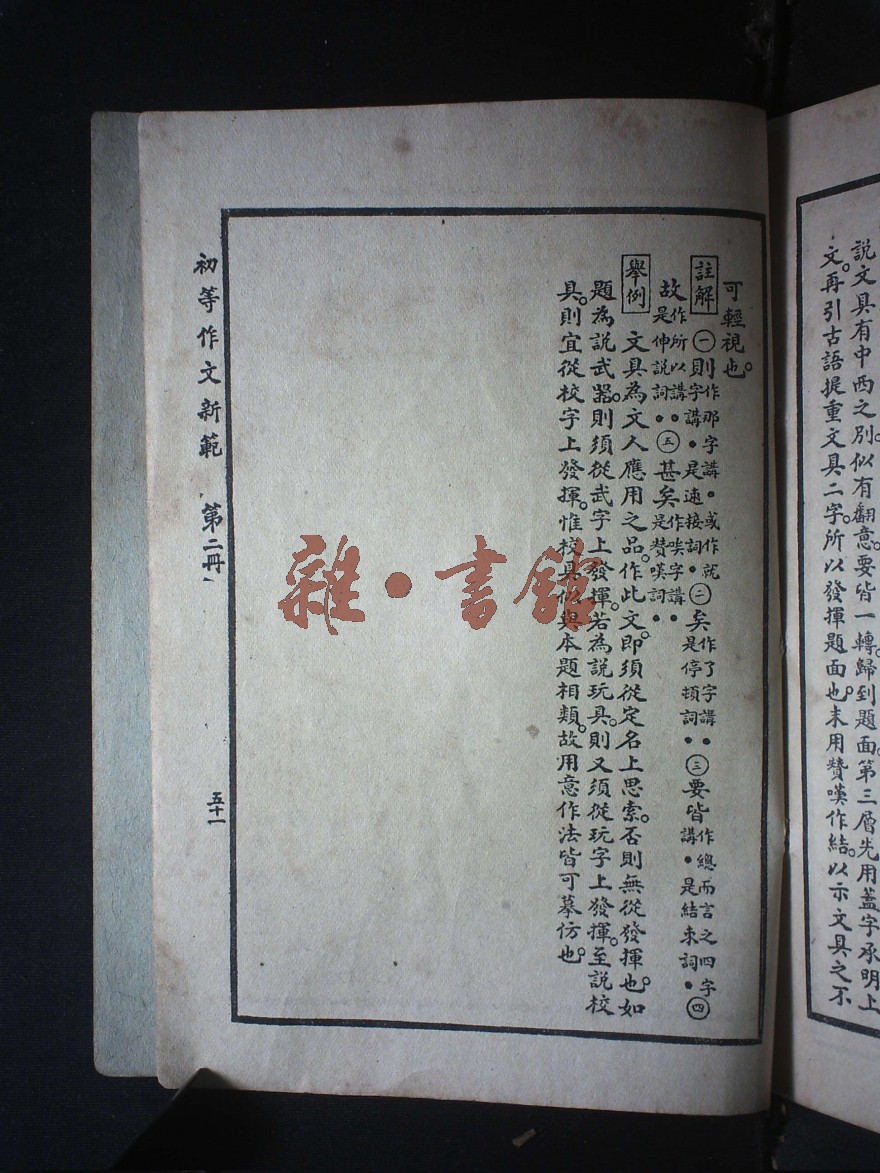 說文具有中西之別。似有翻意。要皆一轉。歸到題面。第三層先用蓋字承明上
文。再引古語提重文具二字。所以發揮題面也。末用贊嘆作結。以示文具之不
可輕視也。
註解 ㊀則作那字講。或作就字講。是速接詞。㊁矣作了字講。是停頓詞。㊂要皆作總而言之四字講。是結束詞。㊃
故作所以講。是伸說詞。㊄甚矣作唉字講。是贊嘆詞。
舉例 文具為文人應用之品。作此文。即須從定名上思索。否則無從發揮也。如
題為說武器。則須從武字上發揮。若為說玩具。則又須從玩字上發揮。至說校
具。則宜從校字上發揮。惟校具似與本題相類。故用意作法皆可摹仿也。
初等作文新範 第二冊
五十一
雜·書館